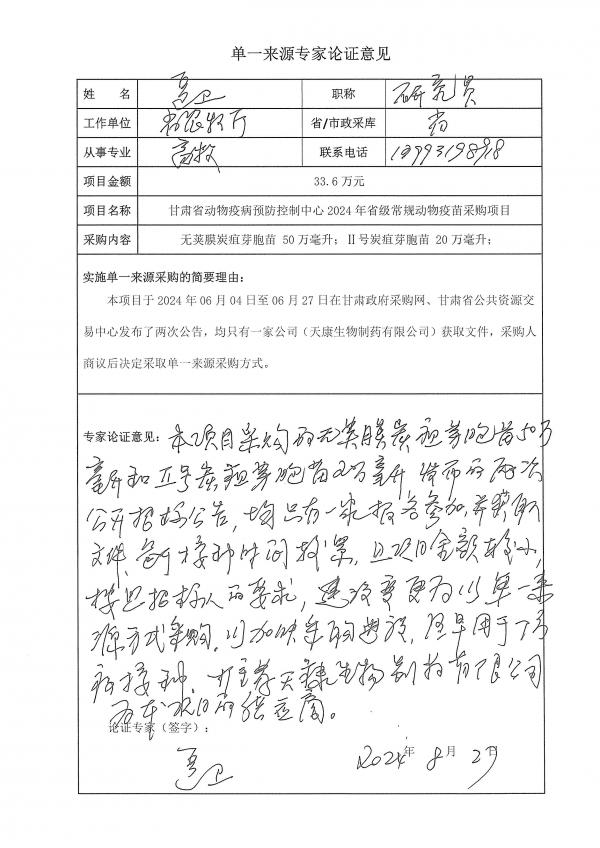 单一来源专家论证意见
姓 名 卫 职称 研究员
工作单位 省农牧厅 省/市政采库 省
从事专业 畜牧 联系电话
项目金额 33.6 万元
项目名称 甘肃省动物疫病预防控制中心 2024 年省级常规动物疫苗采购项目
采购内容 无荚膜炭疽芽胞苗 50 万毫升；Ⅱ号炭疽芽胞苗 20 万毫升；
实施单一来源采购的简要理由：
本项目于 2024 年 06 月 04 日至 06 月 27 日在甘肃政府采购网、甘肃省公共资源交
易中心发布了两次公告，均只有一家公司（天康生物制药有限公司）获取文件，采购人
商议后决定采取单一来源采购方式。
专家论证意见：本项目采购的无荚膜炭疽芽胞苗50万
毫升和Ⅱ号炭疽芽胞苗20万毫升 发布的两次
公开招标公告，均只有一家报名参加，并获取
文件，接种时间较紧，且项目金额较小，
按照招标人的要求，建议变更为以单一来
源方式采购，以加快采购进度，尽早用于
病接种，推荐天康生物制药有限公司
为本项目的供应商。
论证专家（签字）：
卫 2024 年 8 月 27 日